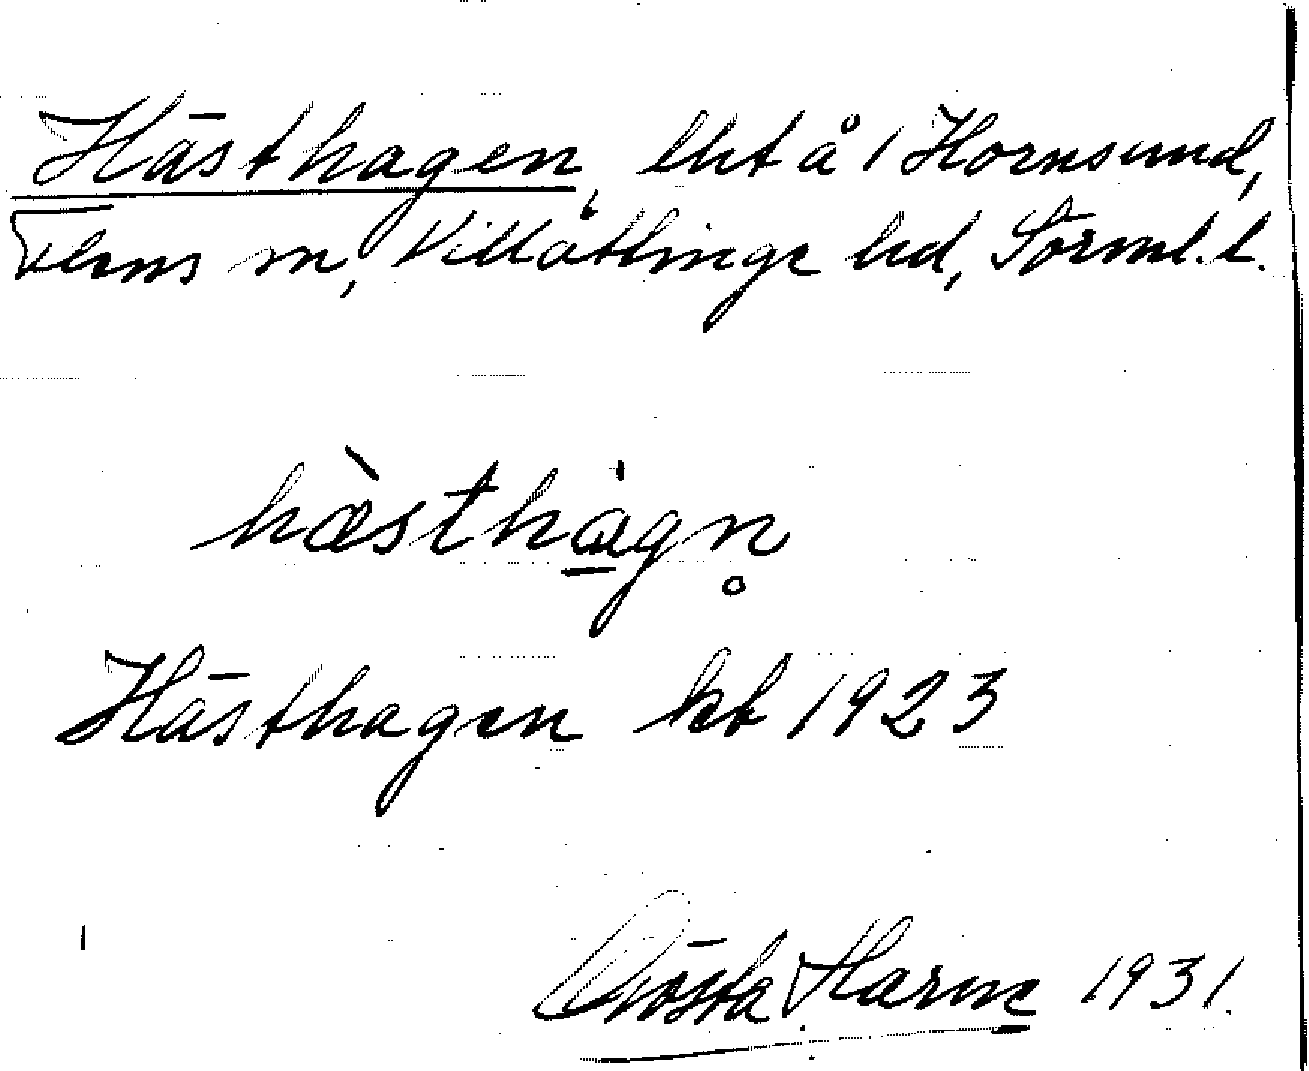 Hästhagen, lht å 1 Hornsund,
Flens sn, Villåttinge hd, Sörml. l.
hæ̀sthàgn̥
Hästhagen kt 1923
Gösta Harme 1931.